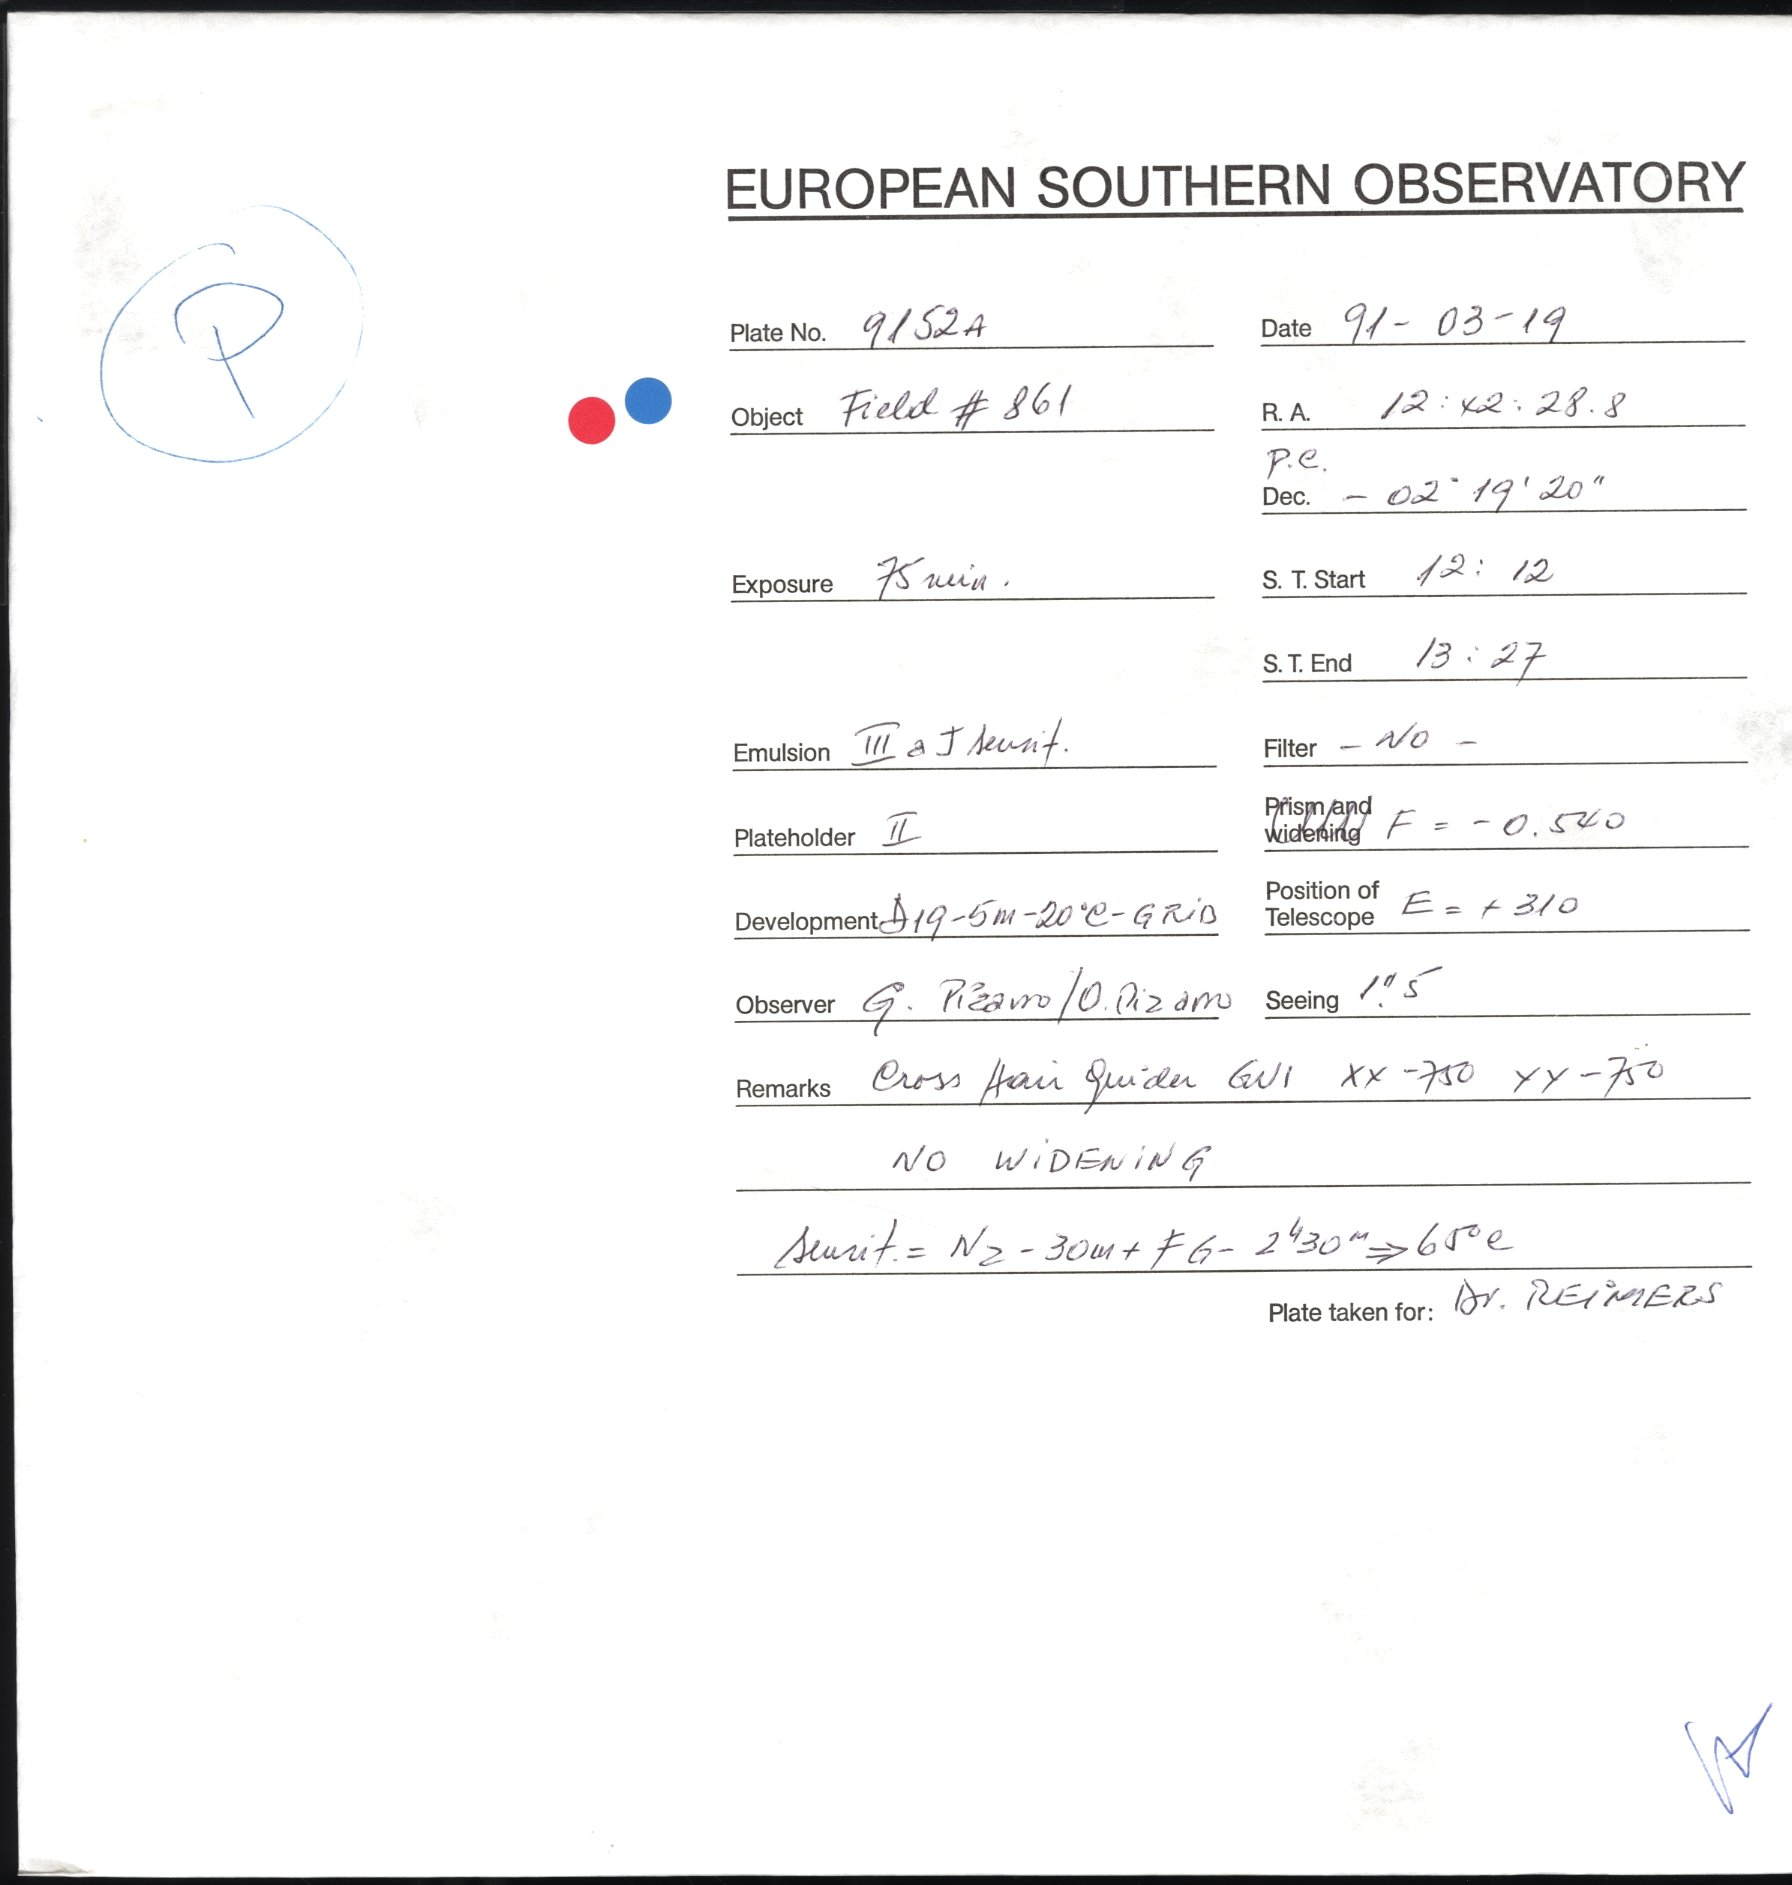 EUROPEAN SOUTHERN OBSERVATORY
P
Plate No. 9152A Date 91-03-19
Object Field # 861 R. A. 12:42:28.8
P.C.
Dec. - 02° 19' 20"
Exposure 75 min. S. T. Start 12:12
S. T. End 13:27
Emulsion III a J sensit. Filter - NO -
Plateholder II Prism and widening F = -0.540
Development D19-5m-20°C-GRID Position of Telescope E = +310
Observer G. Pizarro/O. Pizarro Seeing 1."5
Remarks Cross Hair Guider GV1 XX-750 YY-750
NO WIDENING
Sensit. = N2 - 30m + FG - 2h30m => 65°C
Plate taken for: Dr. REIMERS